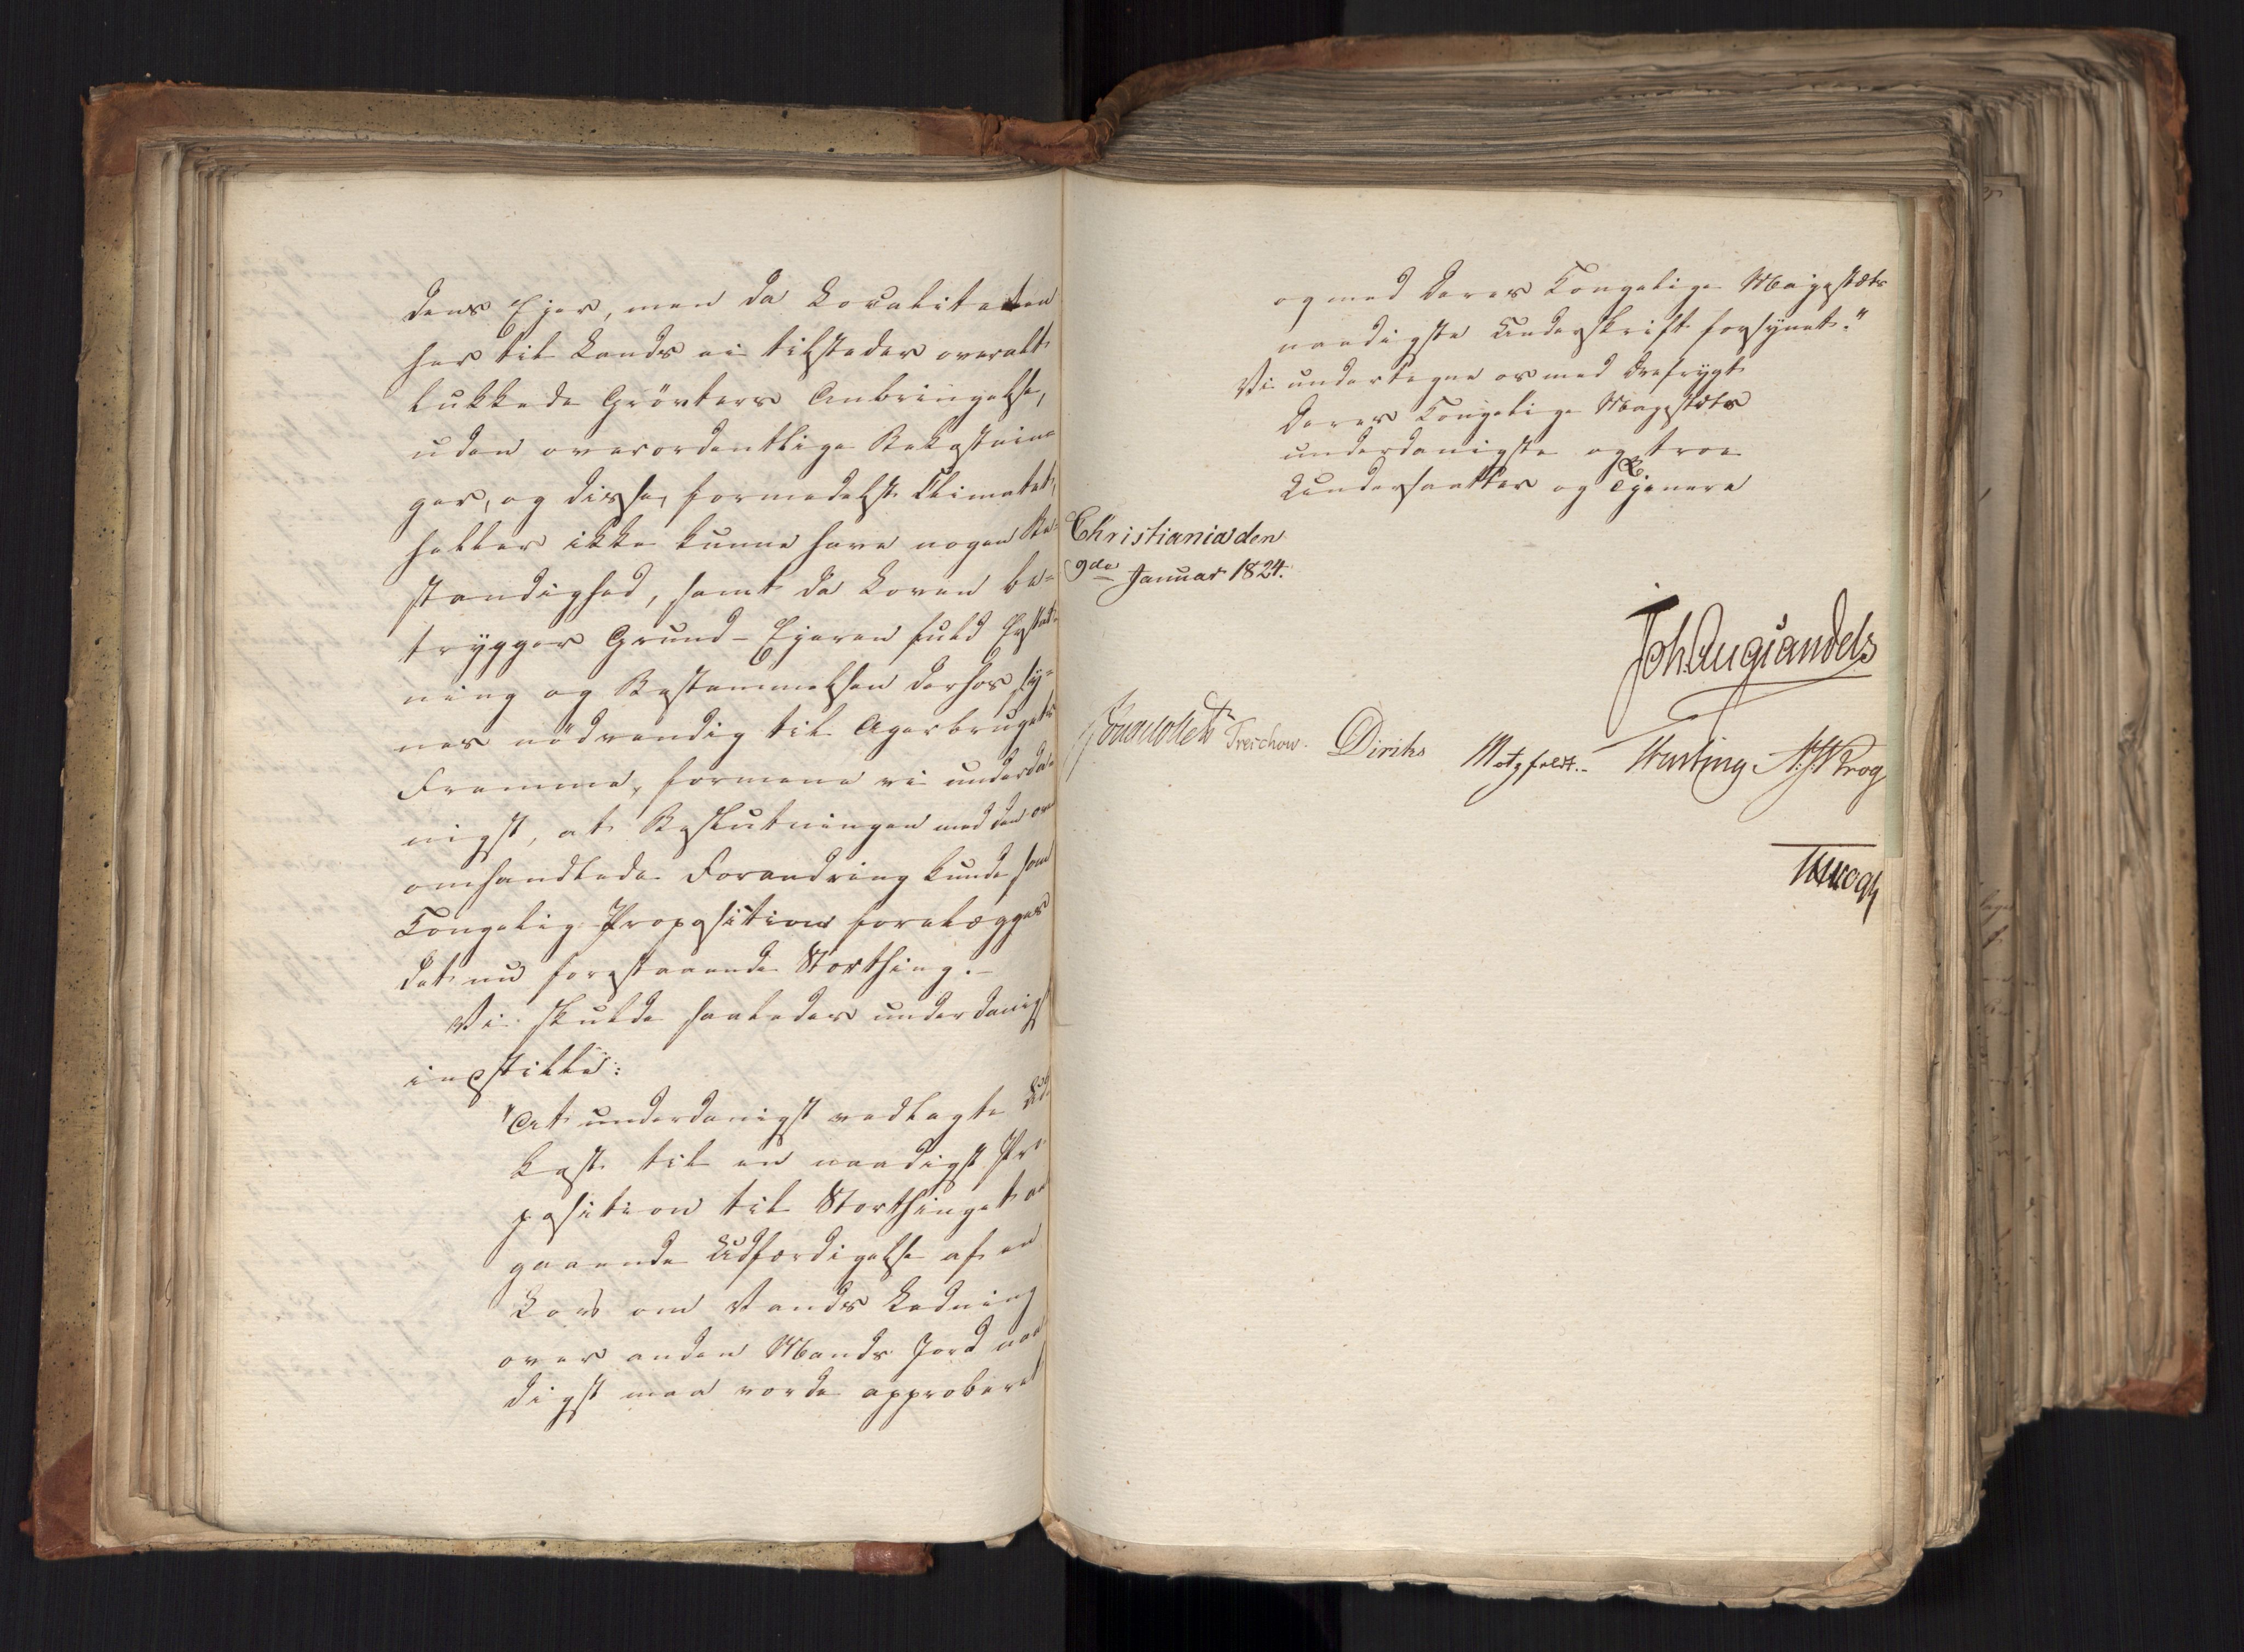 dens Ejer, men da Localiteten
her til Lands ei tilsteder overalt
lukkede Grövters Anbringelse,
uden overordentlige Bekostnin-
ger, og disse, formedelst Climatet,
heller ikke kunne have nogen Be-
standighed, samt da Loven be-
trygger Grund-Ejeren fuld Erstat-
ning og Bestemmelsen derhos sy-
nes nödvendig til Agerbrugets
Fremme, formene vi underda-
nigst, at Beslutningen med den oven
omhandlede Forandring kunde som
Kongelig Proposition forelægges
det nu forestaaende Storthing.-
Vi skulde saaledes underdanigst
indstille:
"At underdanigst vedlagte Ud-
kast til en naadigst Pro-
position til Storthinget an-
gaaende Udfærdigelse af en
Lov om Vands Ledning
over anden Mands Jord naa-
digst maa vorde approberet
og med Deres Kongelige Majestæts
naadigste Underskrift forsynet."
Vi undertegne os med Ærefrygt
Deres Kongelige Majestæts
underdanigste og troe
Undersaatter og Tjenere
Christiania den
9de Januar 1824.
Joh Aug Sandels
Jonas Collett Treschow. Diriks Motzfeldt.- Fasting N. J. Krog
Krogh